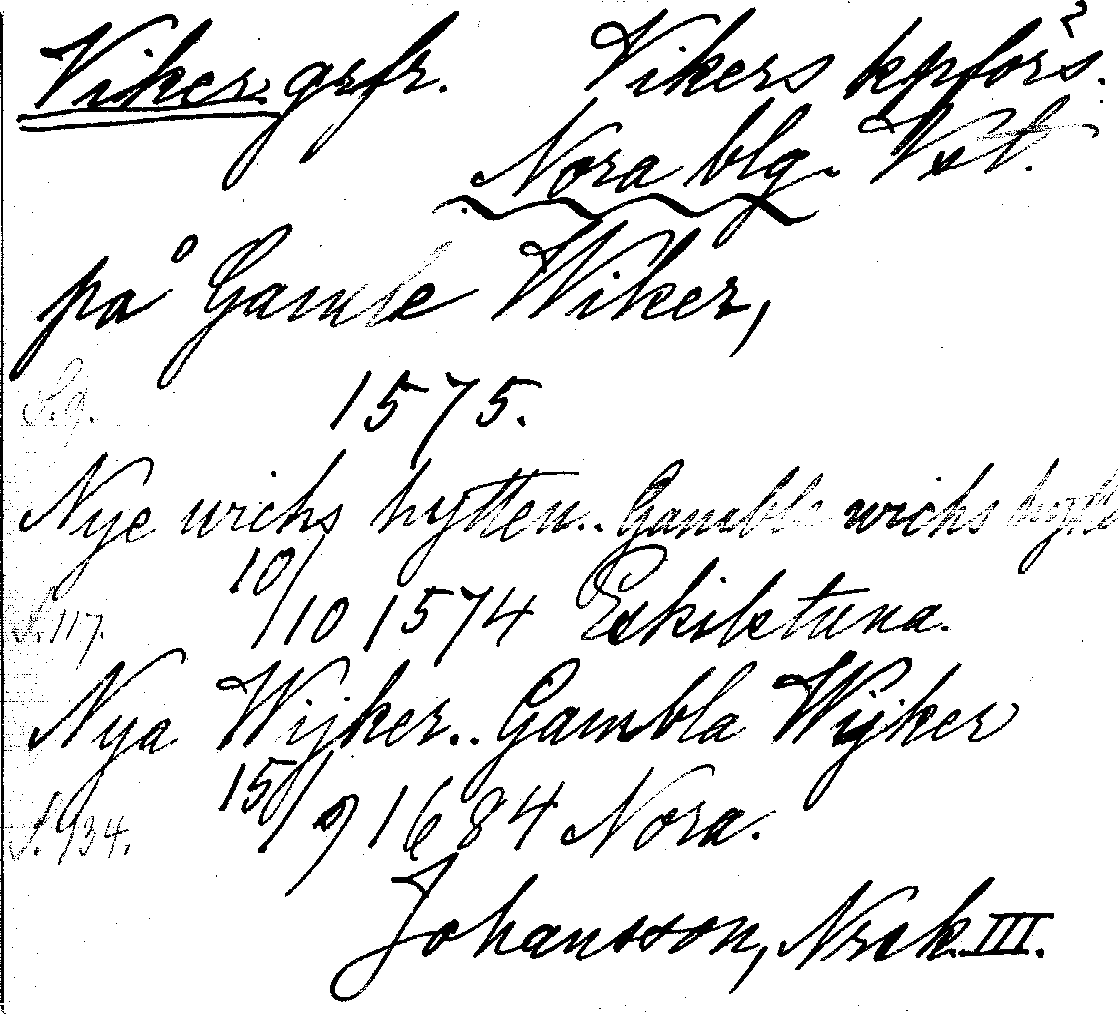 Viker grfr. Vikers kpförs.
Nora blg. Vstl.
på Gamble Wiker,
S. 9. 1575.
Nye wichs hytten.. Gamble wichs hytte
S. 117. 10/10 1574 Eskilstuna.
Nya Wijker.. Gambla Wijker
S. 934. 15/9 1684 Nora.
Johansson, Nrsk. III.